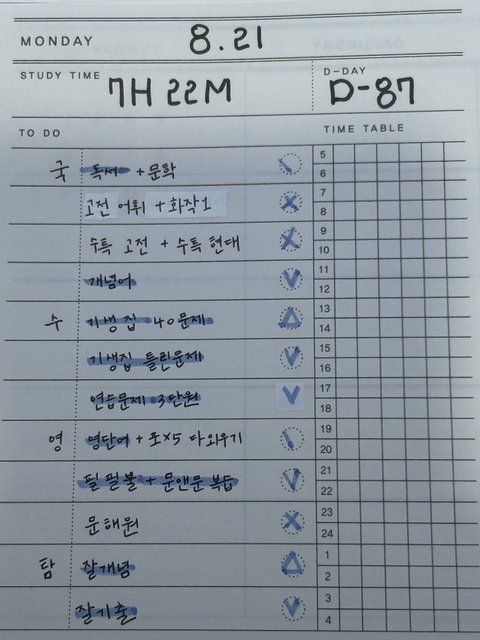 MONDAY 8.21
STUDY TIME 7H 22M D-DAY D-87
TO DO TIME TABLE
국 독서 + 문학
고전 어휘 + 화작1
수특 고전 + 수특 현대
개념어
수 기생집 40문제
기생집 틀린문제
연습문제 3단원
영 영단어 + 포×5 다외우기
필 필불 + 문앤문 복습
문해원
탐 잘개념
잘기출
5
6
7
8
9
10
11
12
13
14
15
16
17
18
19
20
21
22
23
24
1
2
3
4